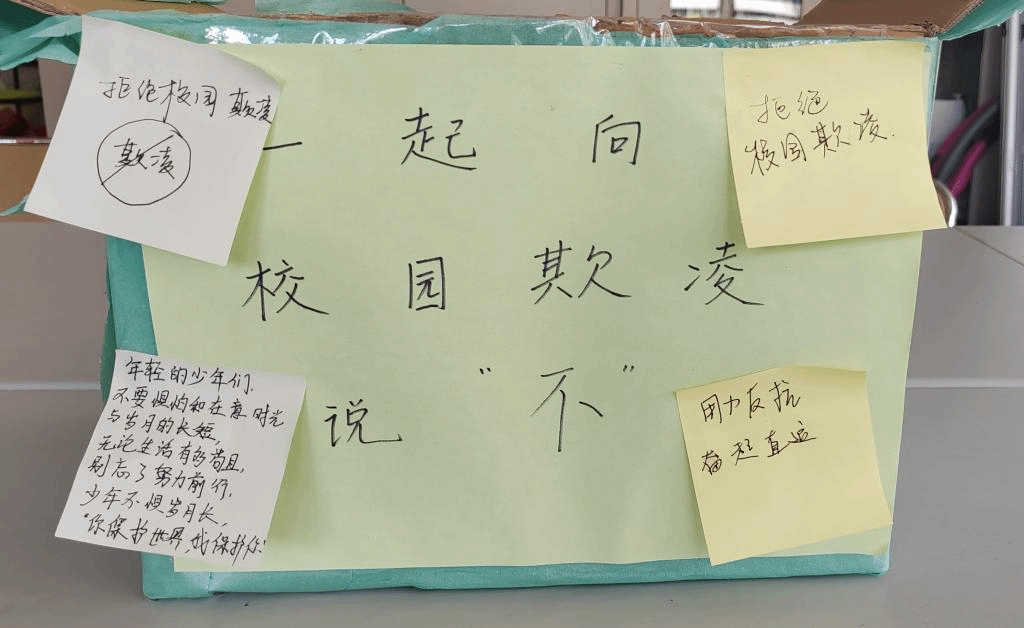 拒绝校园欺凌
欺凌
一起向
校园欺凌
说“不”
拒绝
校园欺凌.
年轻的少年们,
不要惧怕和在意时光
与岁月的长短,
无论生活有多苟且,
别忘了努力前行,
少年不惧岁月长,
“你保护世界,我保护你”
用力反抗
奋起直追